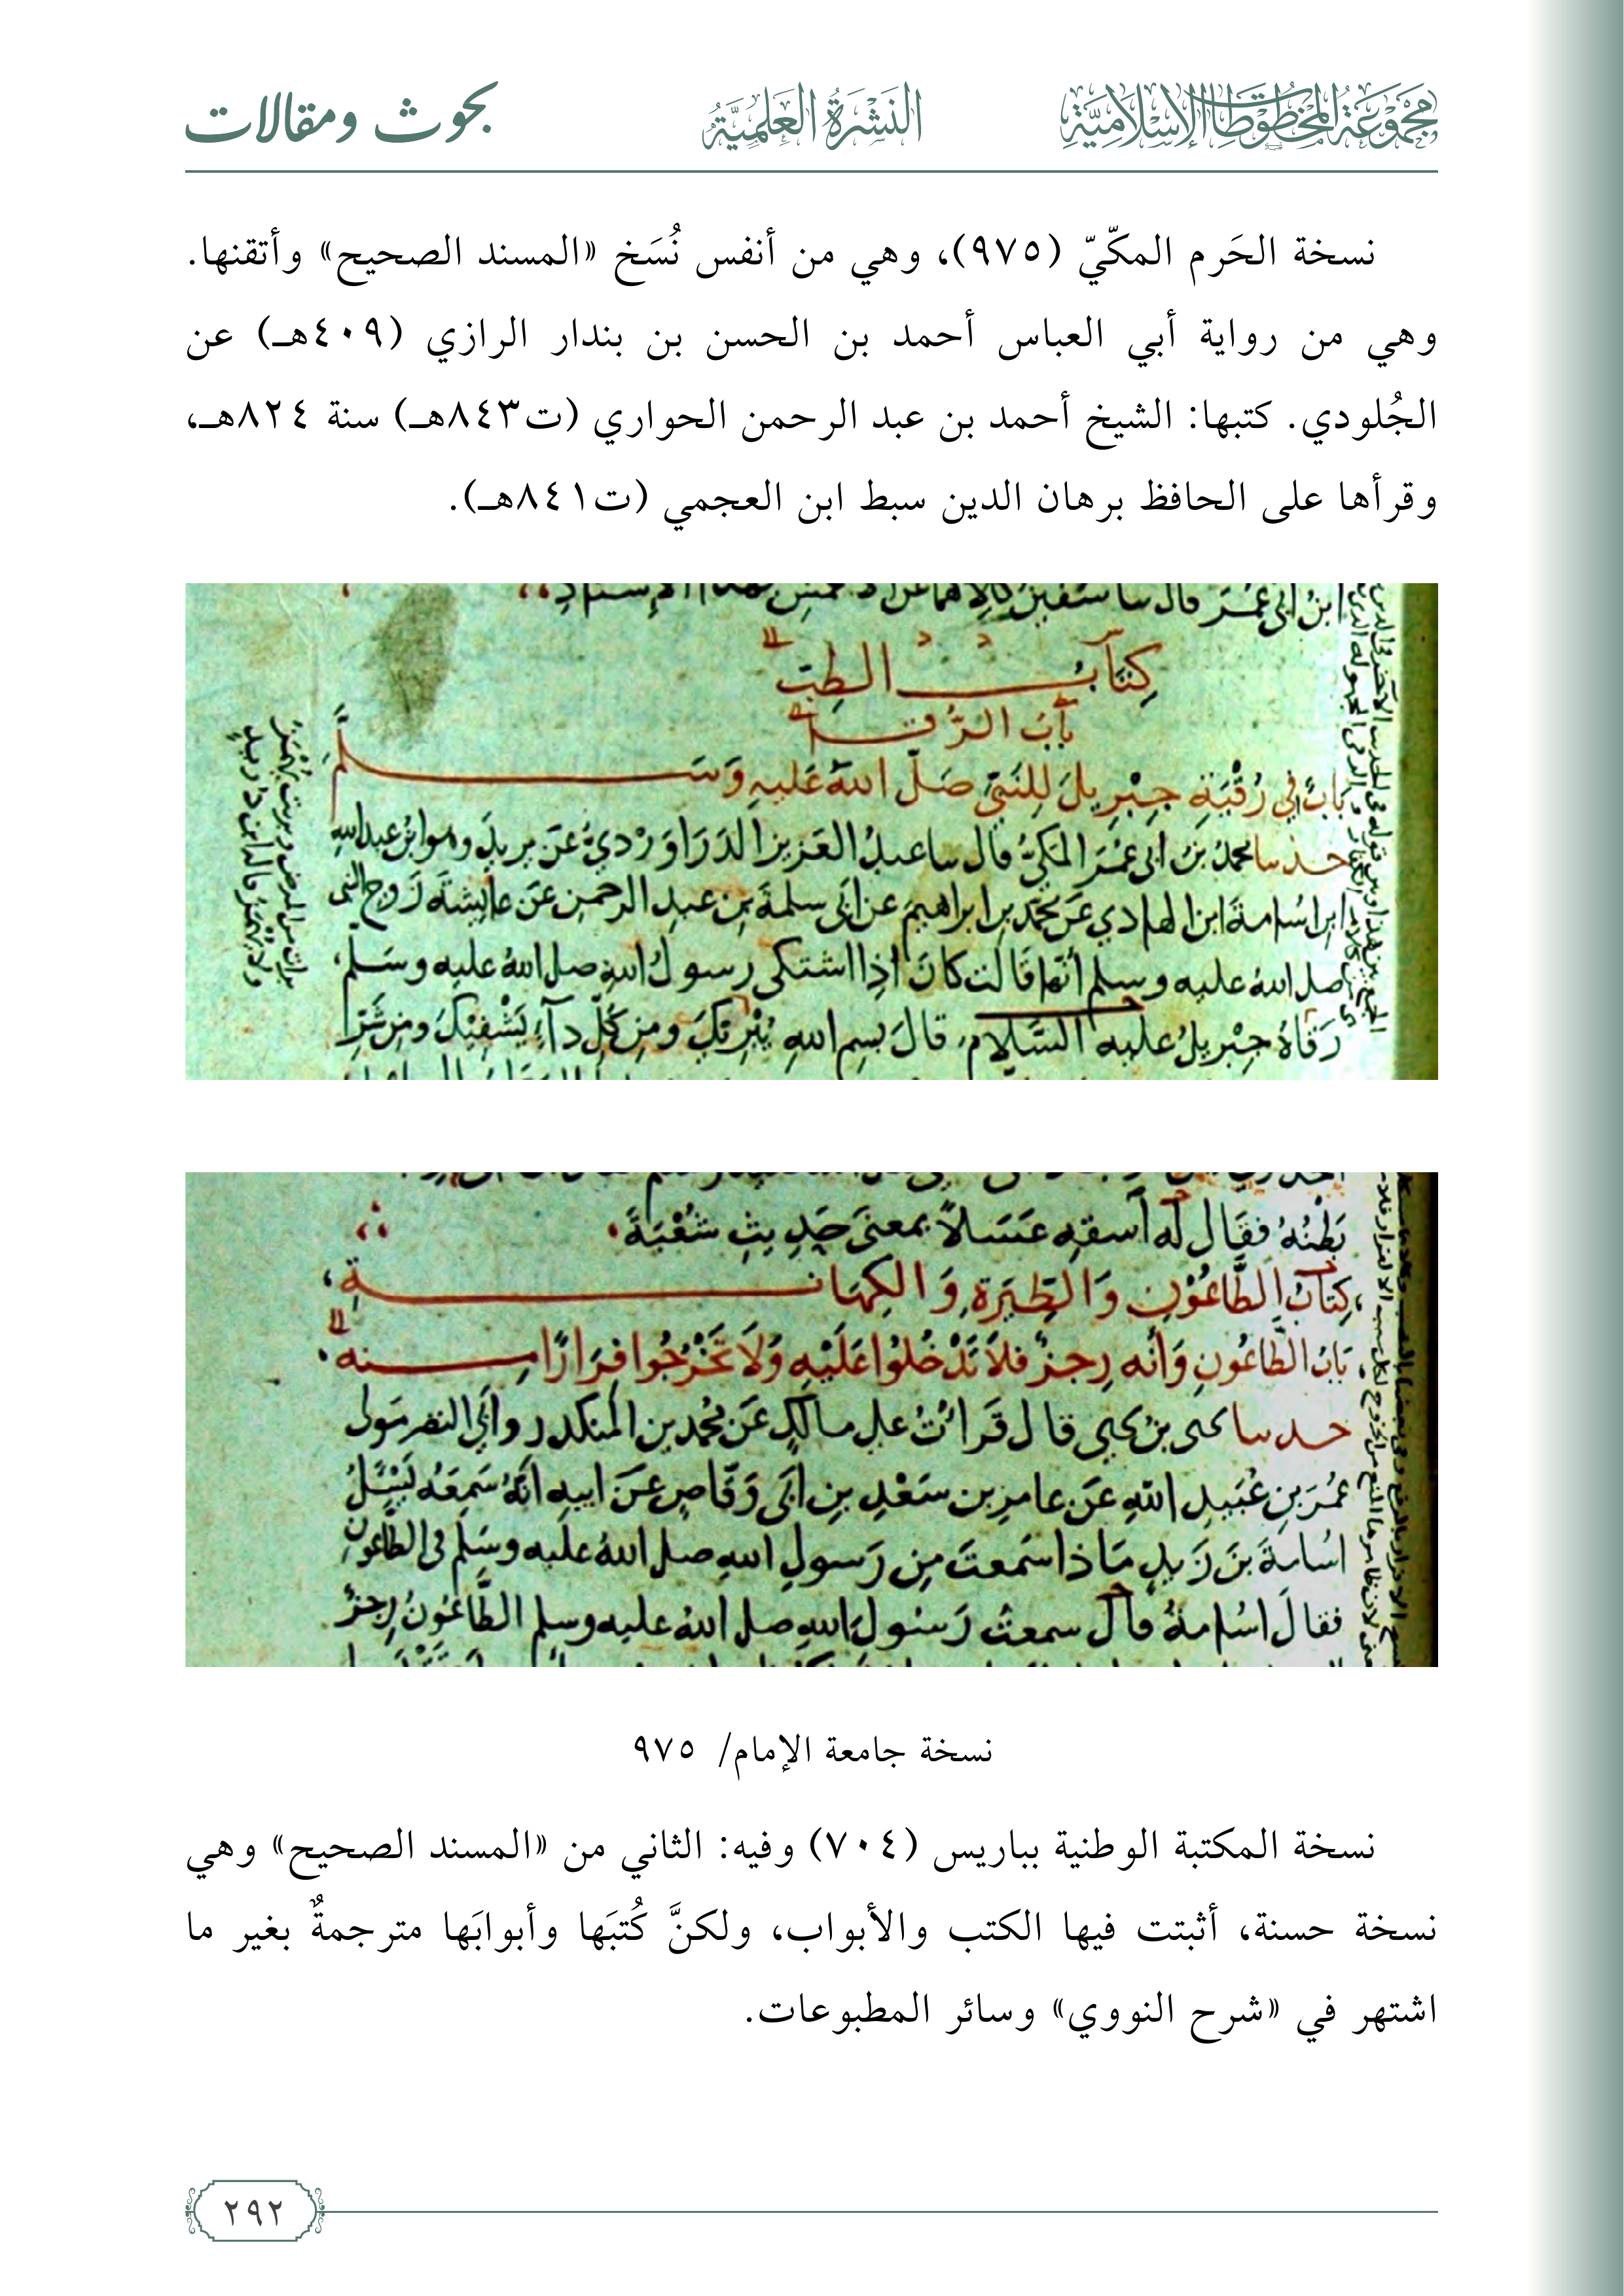 مجموعة المخطوطات الإسلامية
النَّشْرَةُ العِلْمِيَّةُ
بحوث ومقالات
نسخة الحَرم المكّيّ (٩٧٥)، وهي من أنفس نُسَخ «المسند الصحيح» وأتقنها.
وهي من رواية أبي العباس أحمد بن الحسن بن بندار الرازي (٤٠٩هـ) عن
الجُلودي. كتبها: الشيخ أحمد بن عبد الرحمن الحواري (ت٨٤٣هـ) سنة ٨٢٤هـ،
وقرأها على الحافظ برهان الدين سبط ابن العجمي (ت٨٤١هـ).
ابن ابي عمر قال سا سفين كلاهما عن
كتاب الطب
باب الرقا
باب في رقية جبريل للنبي صلى الله عليه وسلم
حدسا محمد بن ابي عمر المكي قال سا عبد العزيز الدراوردي عن يزيد وهو ابن عبد الله
ابن اسامة ابن الهادي عن محمد بن ابراهيم عن ابي سلمة بن عبد الرحمن عن عايشة زوج النبي
صلى الله عليه وسلم انها قالت كان اذا اشتكى رسول الله صلى الله عليه وسلم
رقاه جبريل عليه السلام، قال بسم الله يبريك ومن كل دآء يشفيك ومن شر
بطنه فقال له اسقه عسلا بمعنى حديث شعبة
كتاب الطاعون والطيرة والكهانة
باب الطاعون وأنه رجز فلا تدخلوا عليه ولا تخرجوا فرارا منه
حدسا يحيى بن يحيى قال قرات على مالك عن محمد بن المنكدر وأبي النضر مولى
عمر بن عبيد الله عن عامر بن سعد بن ابي وقاص عن ابيه انه سمعه يسئل
اسامة بن زيد ماذا سمعت من رسول الله صلى الله عليه وسلم في الطاعون
فقال اسامة قال سمعت رسول الله صلى الله عليه وسلم الطاعون رجز
نسخة جامعة الإمام/ ٩٧٥
نسخة المكتبة الوطنية بباريس (٧٠٤) وفيه: الثاني من «المسند الصحيح» وهي
نسخة حسنة، أثبتت فيها الكتب والأبواب، ولكنَّ كُتبَها وأبوابَها مترجمةٌ بغير ما
اشتهر في «شرح النووي» وسائر المطبوعات.
٢٩٢